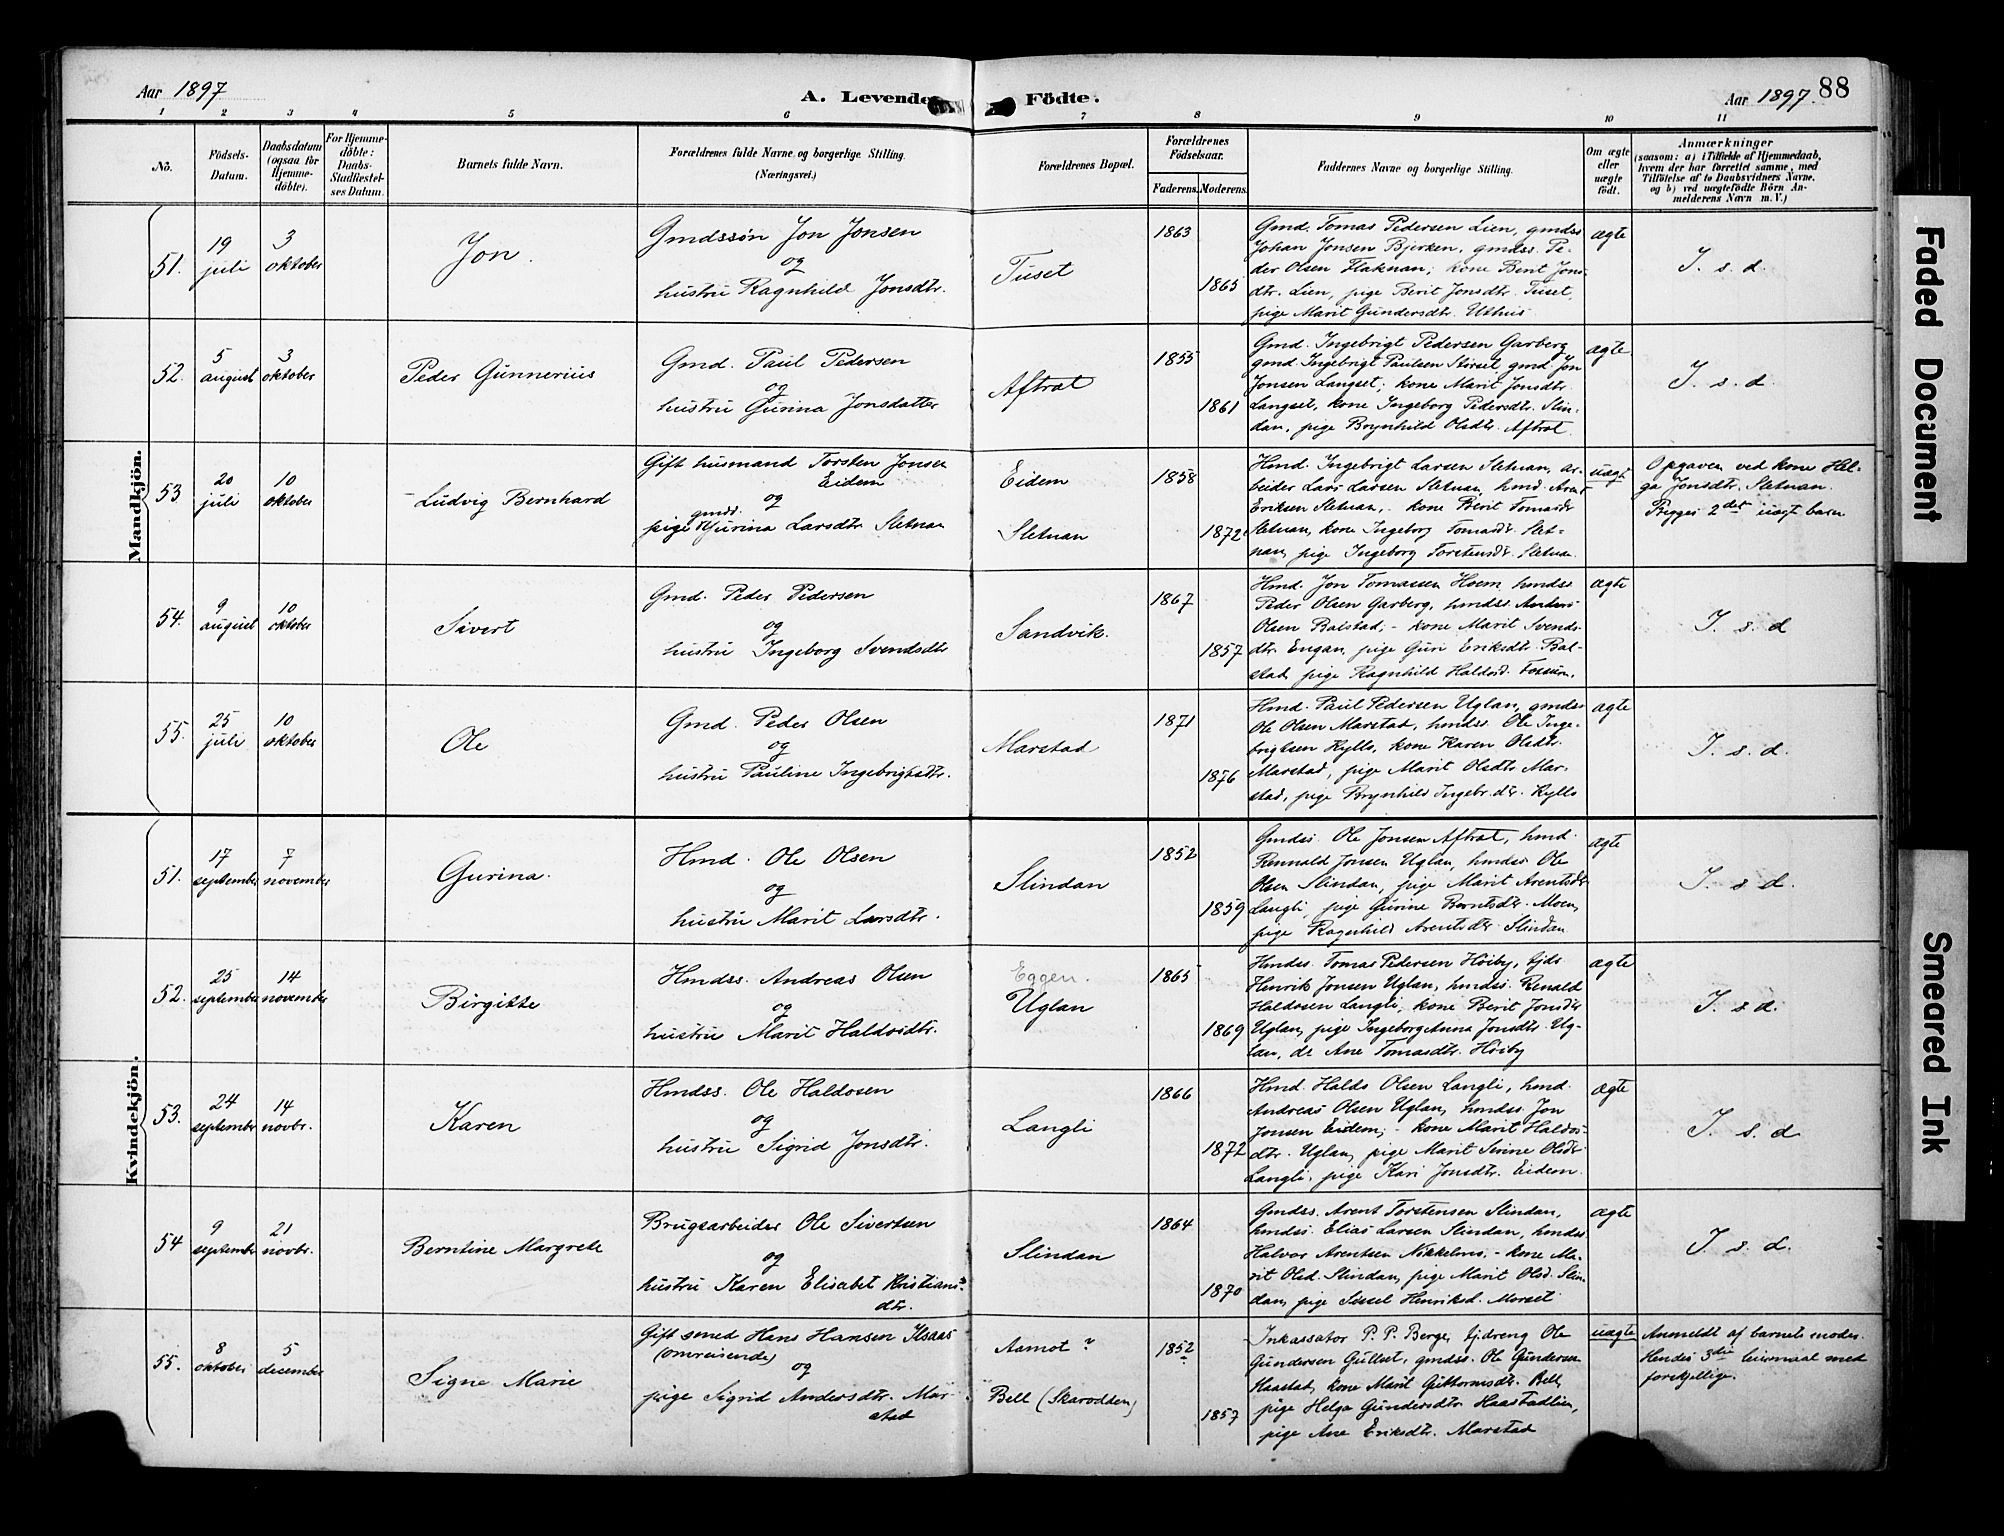 Aar 1897
A. Levende Födte.
Aar 1897. 88
1 2 3 4 5 6 7 8 9 10 11
No.
Födsels-
Datum.
Daabsdatum
(ogsaa for
Hjemme-
döbte).
For Hjemme-
döbte:
Daabs-
Stadfæstel-
ses Datum.
Barnets fulde Navn.
Forældrenes fulde Navne og borgerlige Stilling.
(Næringsvei.)
Forældrenes Bopæl.
Forældrenes
Födselsaar.
Faderens. Moderens.
Faddernes Navne og borgerlige Stilling.
Om ægte
eller
uægte
födt.
Anmærkninger
(saasom: a) i Tilfælde af Hjemmedaab,
hvem der har forrettet samme, med
Tilföielse af to Daabsvidners Navne,
og b) ved uægtefödte Börn An-
melderens Navn m. V.)
Mandkjön.
51.
19
juli
3
oktober
Jon.
Gmdssön Jon Jonsen
og
hustru Ragnhild Jonsdtr.
Tuset
1863
1865
Gmd. Tomas Pedersen Lien, gmdss
Johan Jonsen Bjerken, gmdss. Pe-
der Olsen Flaknan; kone Berit Jons-
dtr. Lien, pige Berit Jonsdtr. Tuset,
pige Marit Gundersdtr. Uthus
ægte
I. s. d.
52.
5
august
3
oktober
Peder Gunnerius
Gmd. Paul Pedersen
og
hustru Gurina Jonsdatter
Aftret
1855
1861
Gmd. Ingebrigt Pedersen Garberg
gmd. Ingebrigt Paulsen Storset, gmd. Jon
Jonsen Langset; kone Marit Jonsdtr.
Langset, kone Ingeborg Pedersdtr. Slin-
dan, pige Brynhild Olsdtr. Aftret
ægte
I. s. d.
53
20
juli
10
oktober
Ludvig Bernhard
Gift husmand Torsten Jonsen
Eidem
og
pige gmdd. Gurina Larsdtr. Sletnan
Eidem
Sletnan
1858
1872
Hmd. Ingebrigt Larsen Sletnan, ar-
beider Lars Larsen Sletnan, hmd. Arnt
Eriksen Sletnan, - kone Berit Tomasdr
Sletnan, kone Ingeborg Tomasdr. Slet-
nan, pige Ingeborg Torstensdr. Sletnan.
uægte
Opgaven ved kone Hel-
ga Jonsdtr. Sletnan.
Begges 2det uægt barn
54.
9
august
10
oktober
Sivert
Gmd. Peder Pedersen
og
hustru Ingeborg Svendsdtr
Sandvik.
1867
1857
Hmd. Jon Tomassen Hoem, hmdss
Peder Olsen Garberg, hmdss. Anders
Olsen Balstad, - kone Marit Svends-
dtr. Engan, pige Guri Eriksdtr. Bal-
stad, pige Ragnhild Haldosd. Fossum.
ægte
I. s. d
55.
25
juli
10
oktober
Ole
Gmd. Peder Olsen
og
hustru Pauline Ingebrigtsdtr.
Marstad
1871
1876
Hmd. Paul Pedersen Uglan, gmdss
Ole Olsen Marstad, hmdss. Ole Inge-
brigtsen Kyllo, kone Karen Olsdtr.
Marstad, pige Marit Olsdtr. Mar-
stad, pige Brynhild Ingebr.dtr. Kyllo
ægte
I. s. d.
Kvindekjön.
51.
17
september
7
november
Gurina.
Hmd. Ole Olsen
og
hustru Marit Larsdtr.
Slindan
1852
1859
Gmdss. Ole Jonsen Aftret, hmd.
Rennald Jonsen Uglan, hmdss Ole
Olsen Slindan, pige Marit Arentsdtr
Langli, pige Gurine Berntsdtr. Moen,
pige Ragnhild Arentsdtr Slindan
ægte
I. s. d.
52.
25
september
14
november
Birgitte
Hmdss. Andreas Olsen
og
hustru Marit Haldosdtr.
Eggen.
Uglan
1865
1869
Hmdss. Tomas Pedersen Höiby, tjds
Henrik Jonsen Uglan, hmdss. Renald
Haldosen Langli, kone Berit Jonsdtr
Uglan, pige Ingeborg Anna Jonsdtr. Ug-
lan, do Ane Tomasdtr. Höiby
ægte
I. s. d.
53.
24
september
14
novbr.
Karen
Hmdss. Ole Haldosen
og
hustru Sigrid Jonsdtr.
Langli
1866
1872
Hmd. Haldo Olsen Langli, hmd.
Andreas Olsen Uglan, hmdss. Jon
Jonsen Eidem; - kone Marit Haldos-
dtr. Uglan, pige Marit Sirine Olsdr
Langli, pige Kari Jonsdtr. Eidem.
ægte
I. s. d
54
9
september
21
novbr.
Berntine Margrete
Brugsarbeider Ole Sivertsen
og
hustru Karen Elisabet Kristians-
dtr.
Slindan
1864
1870
Gmdss. Arent Torstensen Slindan,
hmdss. Elias Larsen Slindan, hmdss
Halvor Arentsen Nikkelmo, - kone Ma-
rit Olsd. Slindan, pige Marit Olsd. Slin-
dan, pige Sissel Henriksd. Morset
ægte
I. s. d.
55.
8
oktober
5
december
Signe Marie
Gift smed Hans Hansen Ilsaas
(omreisende)
og
pige Sigrid Andersdtr. Mar-
stad
Aamot?
Bell (Skarodden)
1852
1857
Inkassator P. P. Berge, tjdreng Ole
Gundersen Gullset, gmdss. Ole Gundersen
Haastad, kone Marit Guttormsdtr. Bell,
pige Helga Gundersdtr Haastadlien,
pige Ane Eriksdtr. Marstad
uægte
Anmeldt af barnets moder.
Hendes 3die leiermaal med
forskjellige.
Faded Document
Smeared Ink